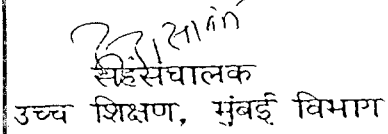 सहसंचालक
उच्च शिक्षण, मुंबई विभाग